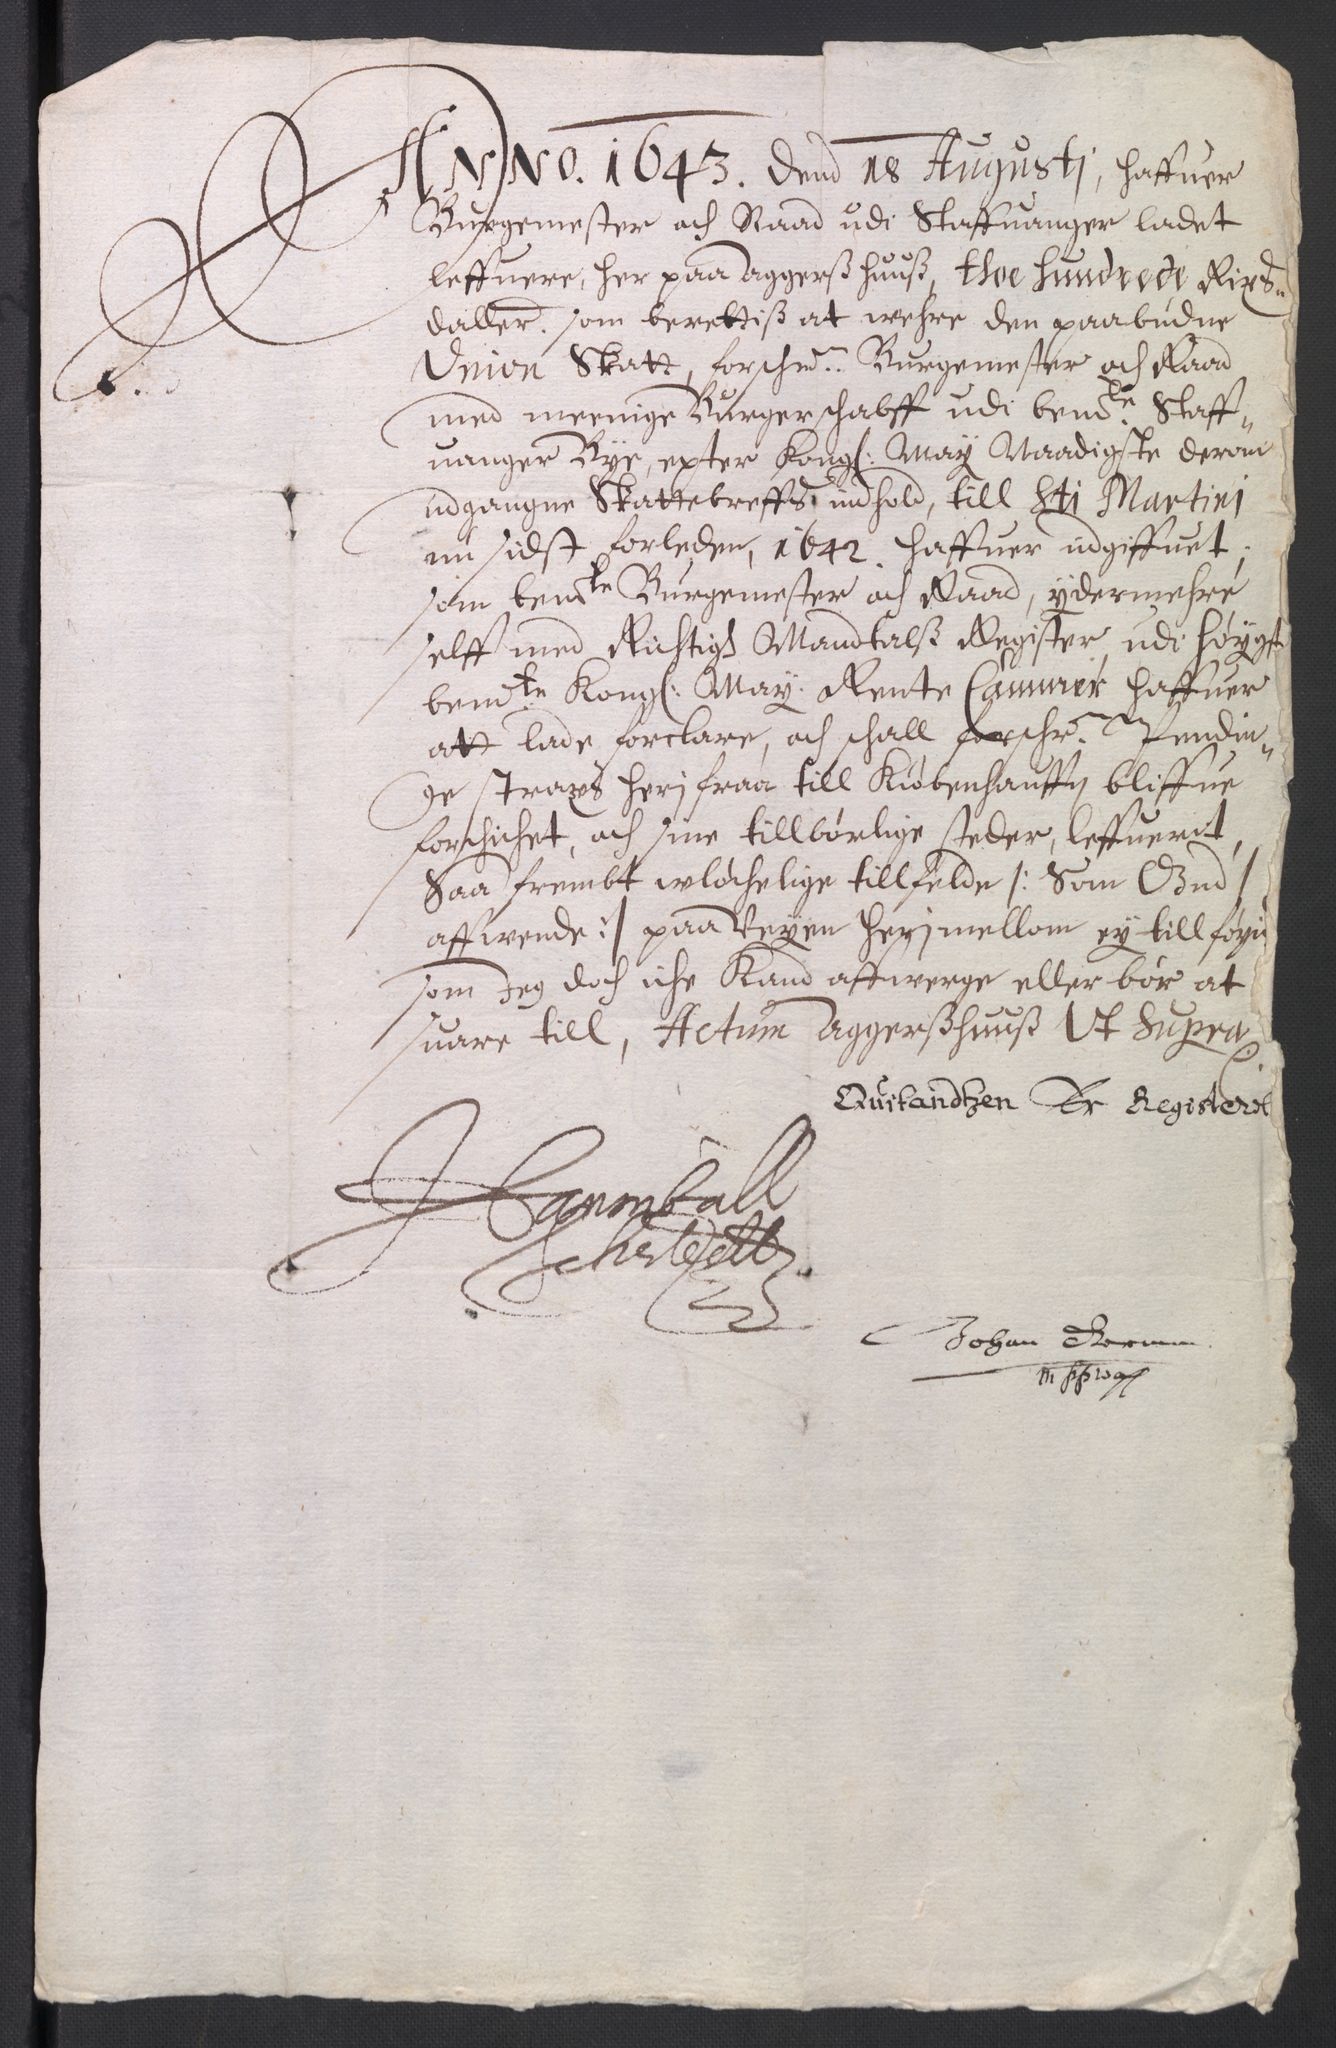 ANNO. 1643. Dend 18 Augustj, haffuer
Burgemester och Raad udi Staffuanger ladet
leffuere, her paa Aggerßhuuß, thoe hundrede Rixs„
daller. som berettiß at wehre den paabudne
Union Skatt, forschr: Burgemester och Raad
med meenige Burgerschabff udi bemte: Staff„
uanger Bye, epter Kongl: May Naadigste derom
udgangne Skattebreffs indhold, till Sti Martini
nu sidst forleden, 1642. haffuer udgiffuet,
som bemte Burgemester och Raad, ydermehre
selff med Richtige Mandtalß Register udi høygst
bemte Kongl: May: Rente Cammer haffuer
att lade forclare, och schall forschr. Pendin„
ge strax herifraa till Kiøbenhauffn bliffue
forschichet, och sine tillbørlige steder, leffuerit,
Saa frembt wlychelige tillfelde /: Som Gud
affwende :/ paa Veyen herjmellom ey tillføyes
som Jeg doch iche Kand affwerge eller bør at
suare till, Actum Aggerßhuuß Ut Supra
Quitandtzen Er Registerit
Hannball
Sehestedt
Johan Gorman
mpp